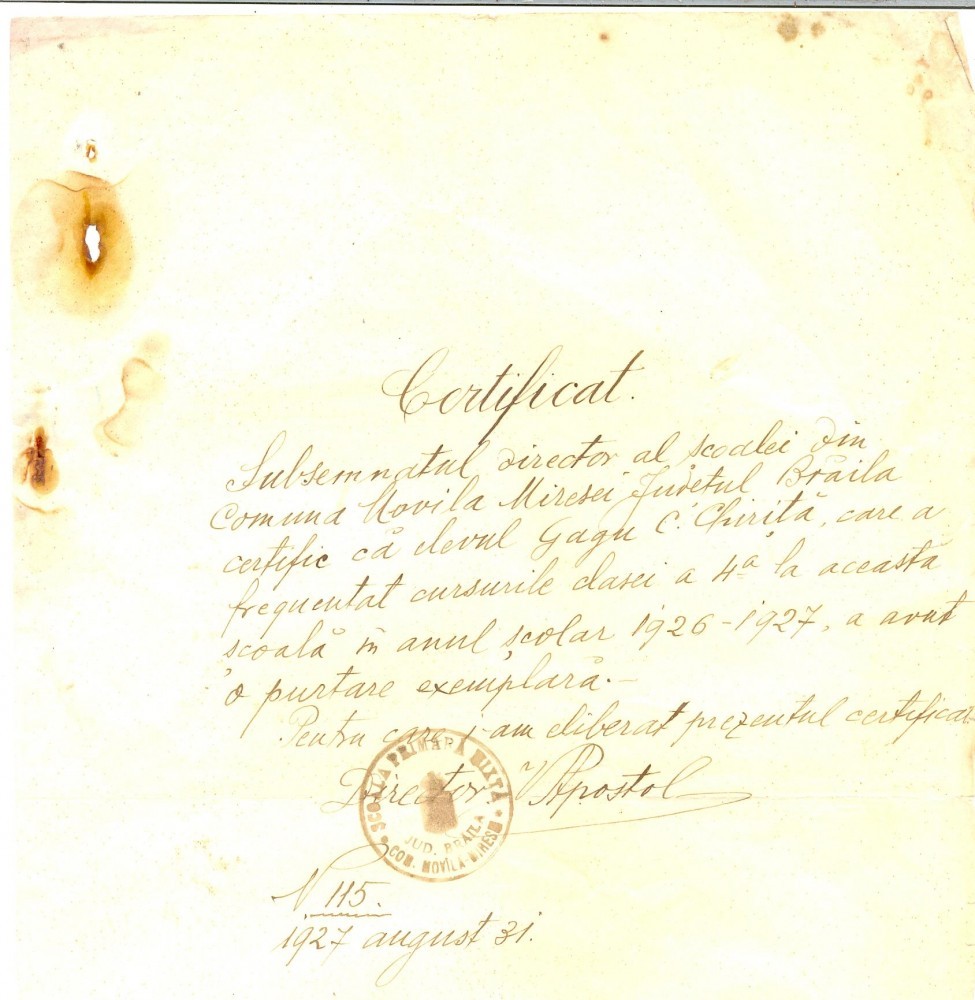 Certificat.
Subsemnatul director al scoalei din
Comuna Movila Miresei Judetul Brăila
certific că elevul Gagu C. Chiriţă, care a
frequentat cursurile clasei a 4ª la această
scoală în anul şcolar 1926-1927, a avut
o purtare exemplară.-
Pentru care i-am eliberat prezentul certificat
Director V Apostol
SCOALA PRIMARĂ MIXTĂ
JUD. BRAILA
COM. MOVILA-MIRESII
N 115.
1927 august 31.